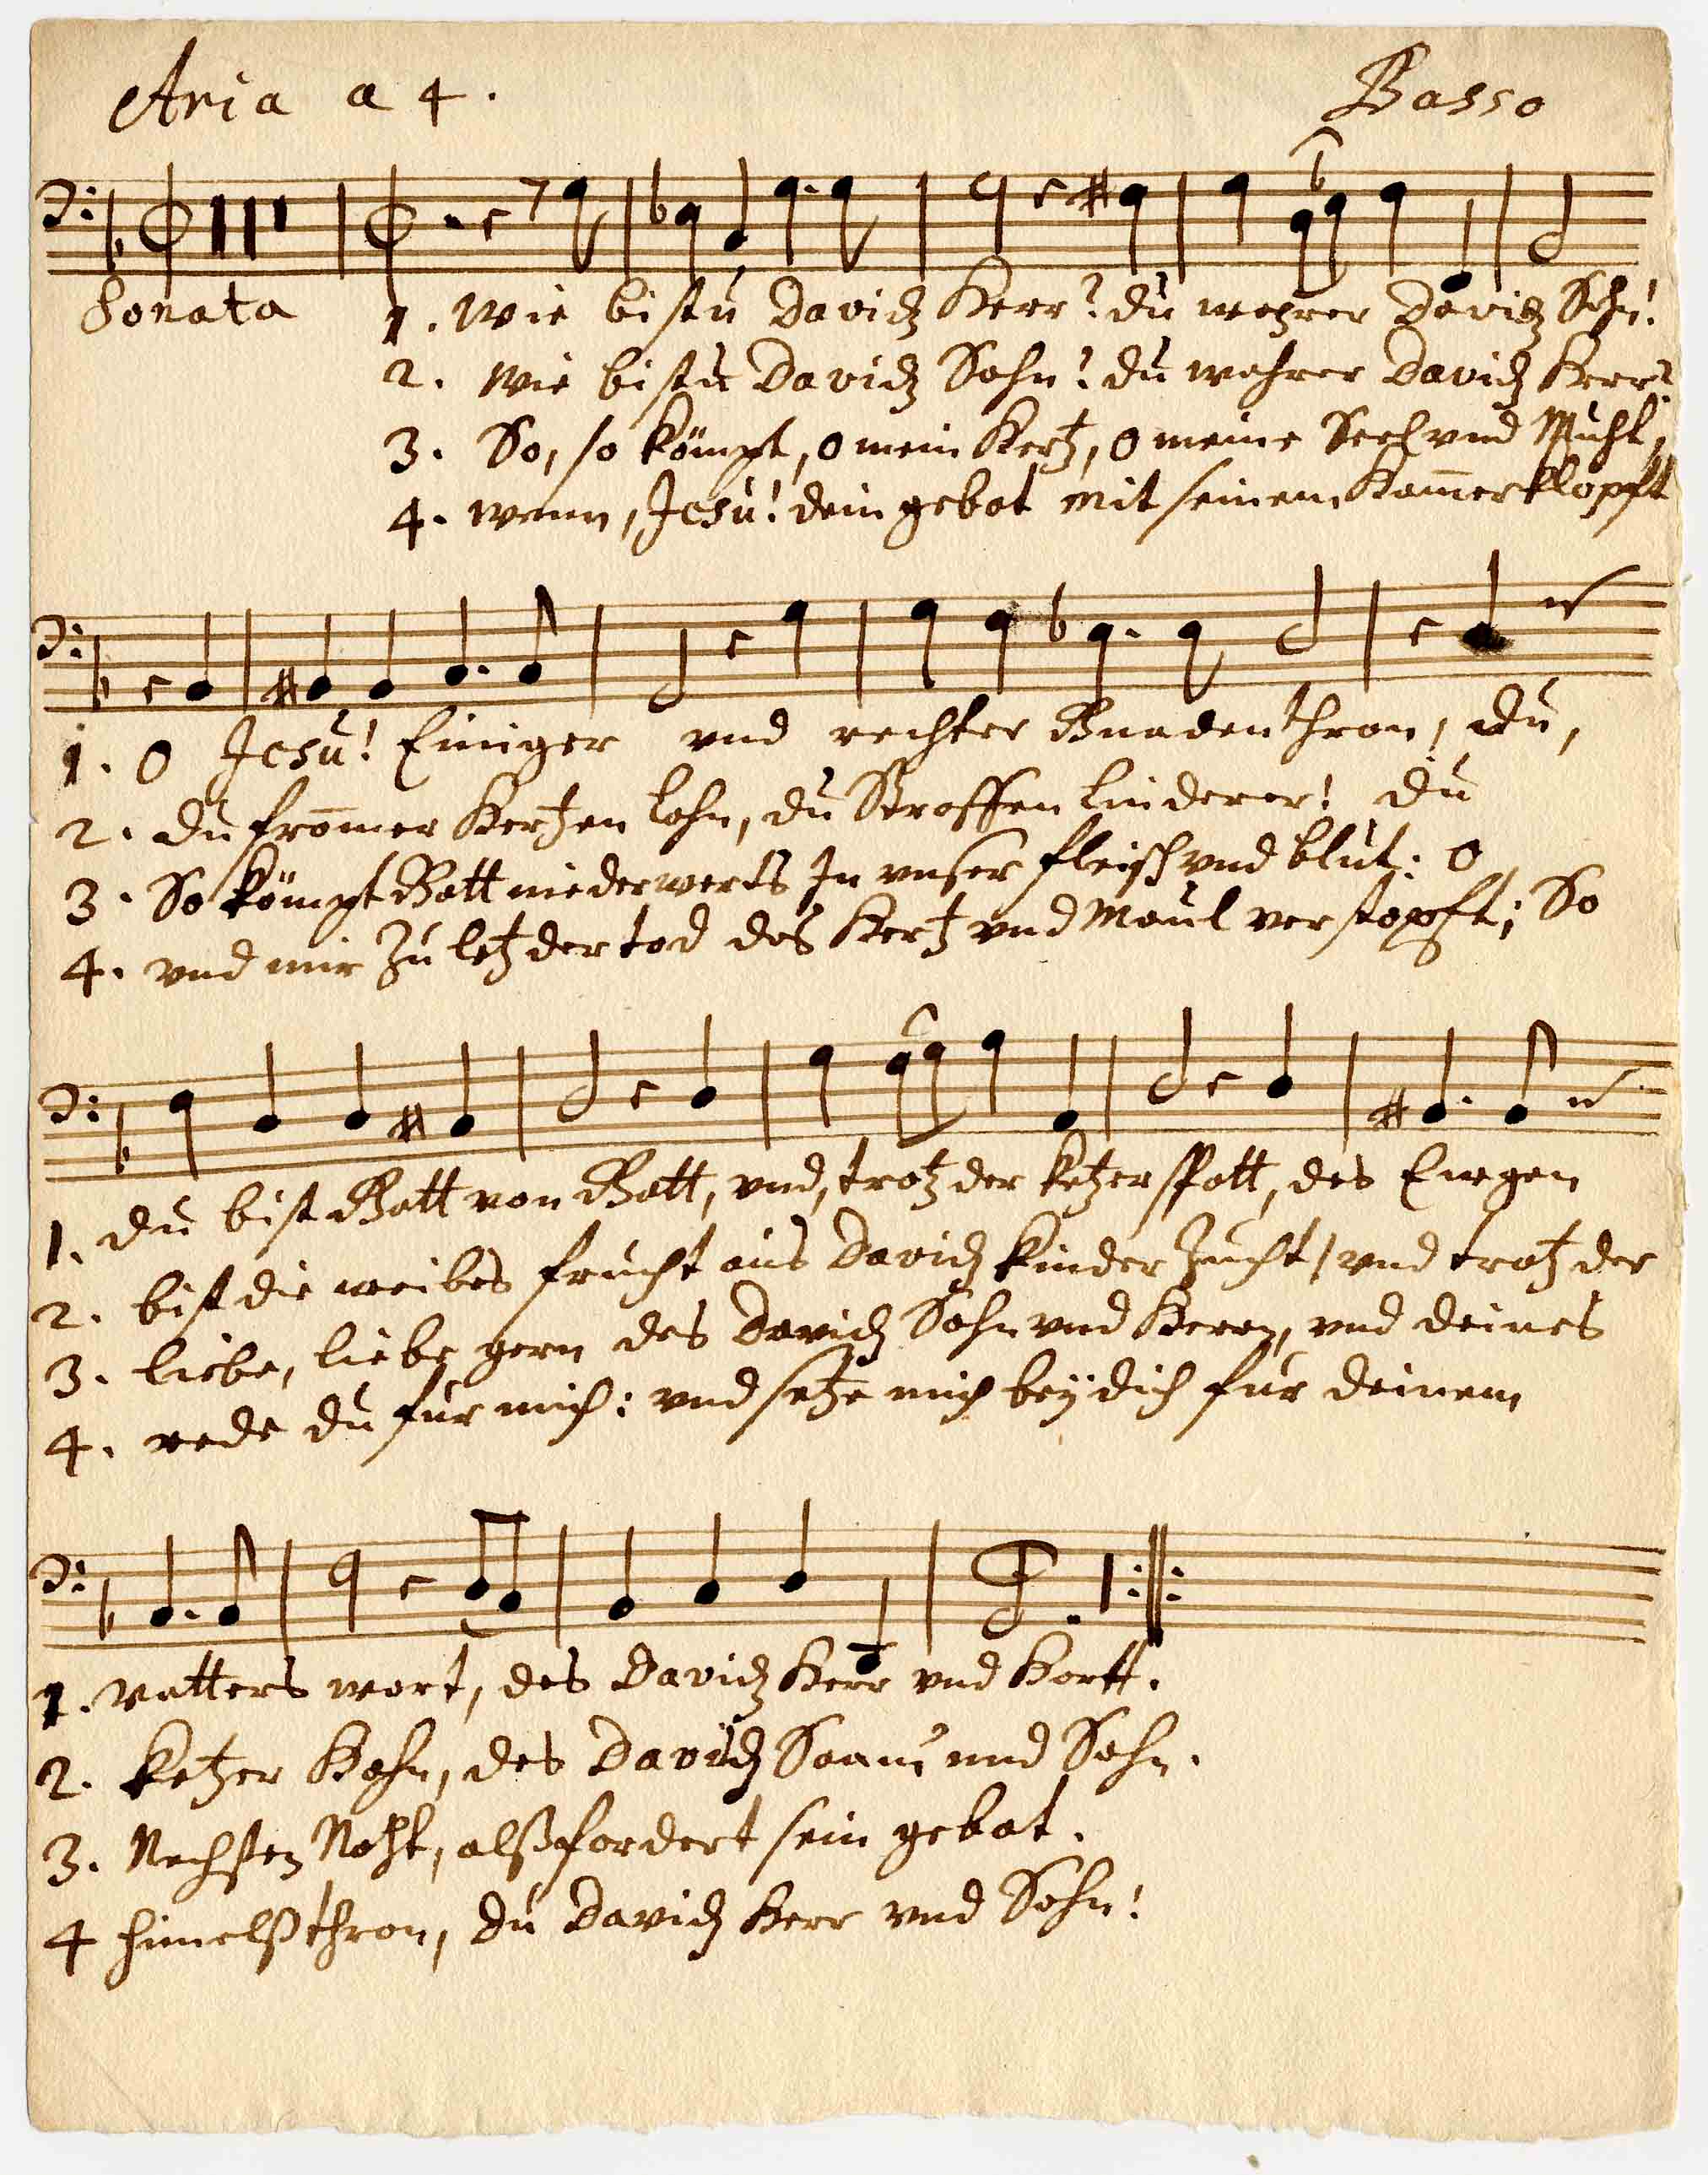 Aria a 4.
Basso
Sonata
1. Wie bistu Davidz Herr? du wahrer Davidz Sohn!
2. Wie bistu Davidz Sohn? du wahrer Davidz Herr?
3. So, so kömpt, o mein Hertz, o meine Seel vnd Muht,
4. wenn, Jesu! dein gebot mit seinem Ham̄er klopft
1. O Jesu! Einiger vnd rechter Gnadenthron, du,
2. du from̄er Hertzen lohn, du Straffen linderer! du
3. So kömpt Gott niederwerts In vnser fleisch vnd blut: O
4. vnd mir zu letz der tod das Hertz vnd Maul verstopft; So
1. du bist Gott von Gott, vnd, trotz der ketzer spott, des Ewgen
2. bist die weibes frucht aus Davidz kinder Zucht, vnd trotz der
3. liebe, liebe gern des Davidz Sohn vnd Herrn, vnd deines
4. rede du für mich: vnd setze mich beÿ dich für deinem
1. vatters wort, des Davidz Herr vnd Hortt.
2. ketzer Hohn, des Davidz Saam vnd Sohn.
3. Nechsten Noht, alß fordert sein gebot.
4 himelß thron, du Davidz Herr vnd Sohn!